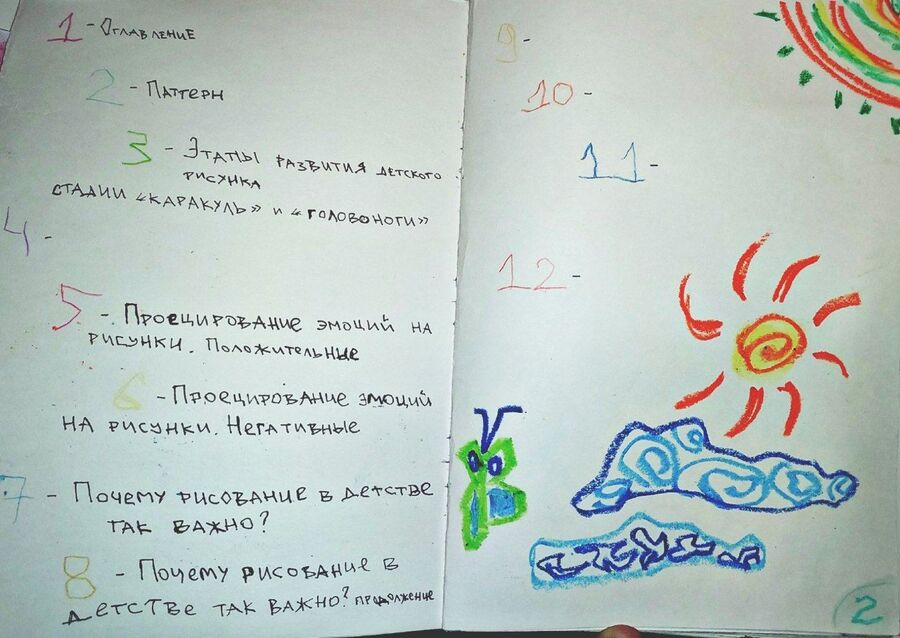 1 - Оглавление
2 - Паттерн
3 - Этапы развития детского
рисунка
стадии «каракуль» и «головоноги»
4 -
5 - Проецирование эмоций на
рисунки. Положительные
6 - Проецирование эмоций
на рисунки. Негативные
7 - Почему рисование в детстве
так важно?
8 - Почему рисование в
детстве так важно? продолжение
9 -
10 -
11 -
12 -
2